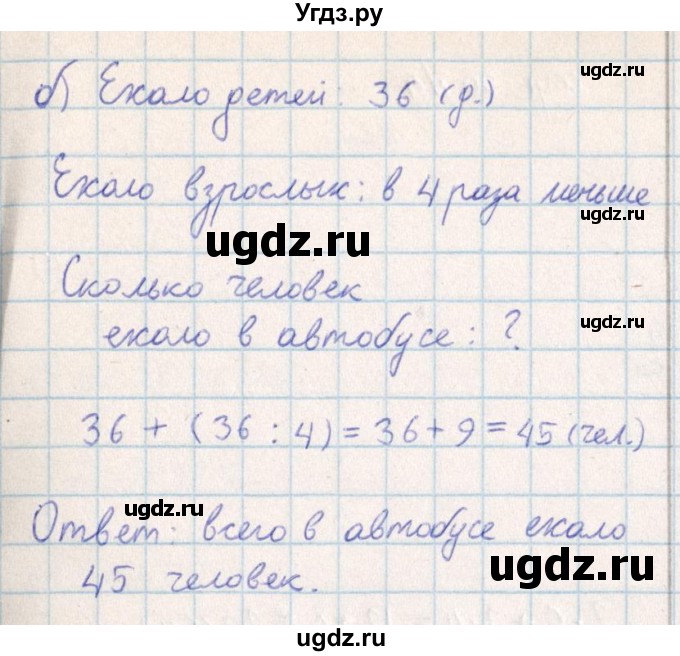 Угдз.ру
ugdz.ru
б) Ехало детей: 36 (д.)
ugdz.ru
Ехало взрослых: в 4 раза меньше
ugdz.ru
ugdz.ru
Сколько человек
ехало в автобусе: ?
ugdz.ru
36 + (36 : 4) = 36 + 9 = 45 (чел.)
ugdz.ru
Ответ: всего в автобусе ехало
ugdz.ru
45 человек.
ugdz.ru